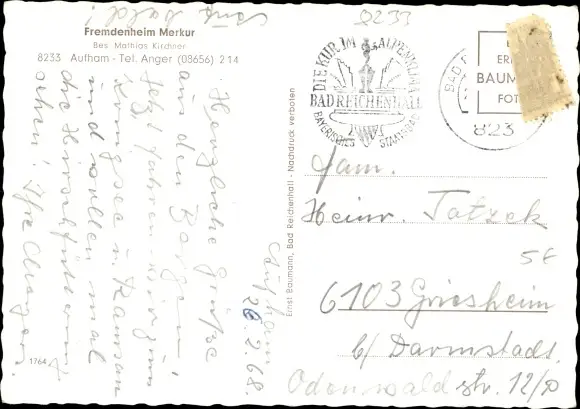 bald!
Fremdenheim Merkur
Bes. Mathias Kirchner
8233 Autham - Tel. Anger (08656) 214
Herzliche Grüße
aus den Bergen!
Jetzt fahren wir zum
Königsee u. Ramsau
und wollen mal
die Hirschfütterung
sehen!
1764
Aufham
26.2.68.
Ernst Baumann, Bad Reichenhall - Nachdruck verboten
8233
DIE KUR IM ALPENKLIMA
BAD REICHENHALL
BAYERISCHES STAATSBAD
BAD
823
BAUM
FOT
Fam.
Heinr. Tatzek
5€
6103 Griesheim
b/ Darmstadt.
Odenwaldstr. 12/10